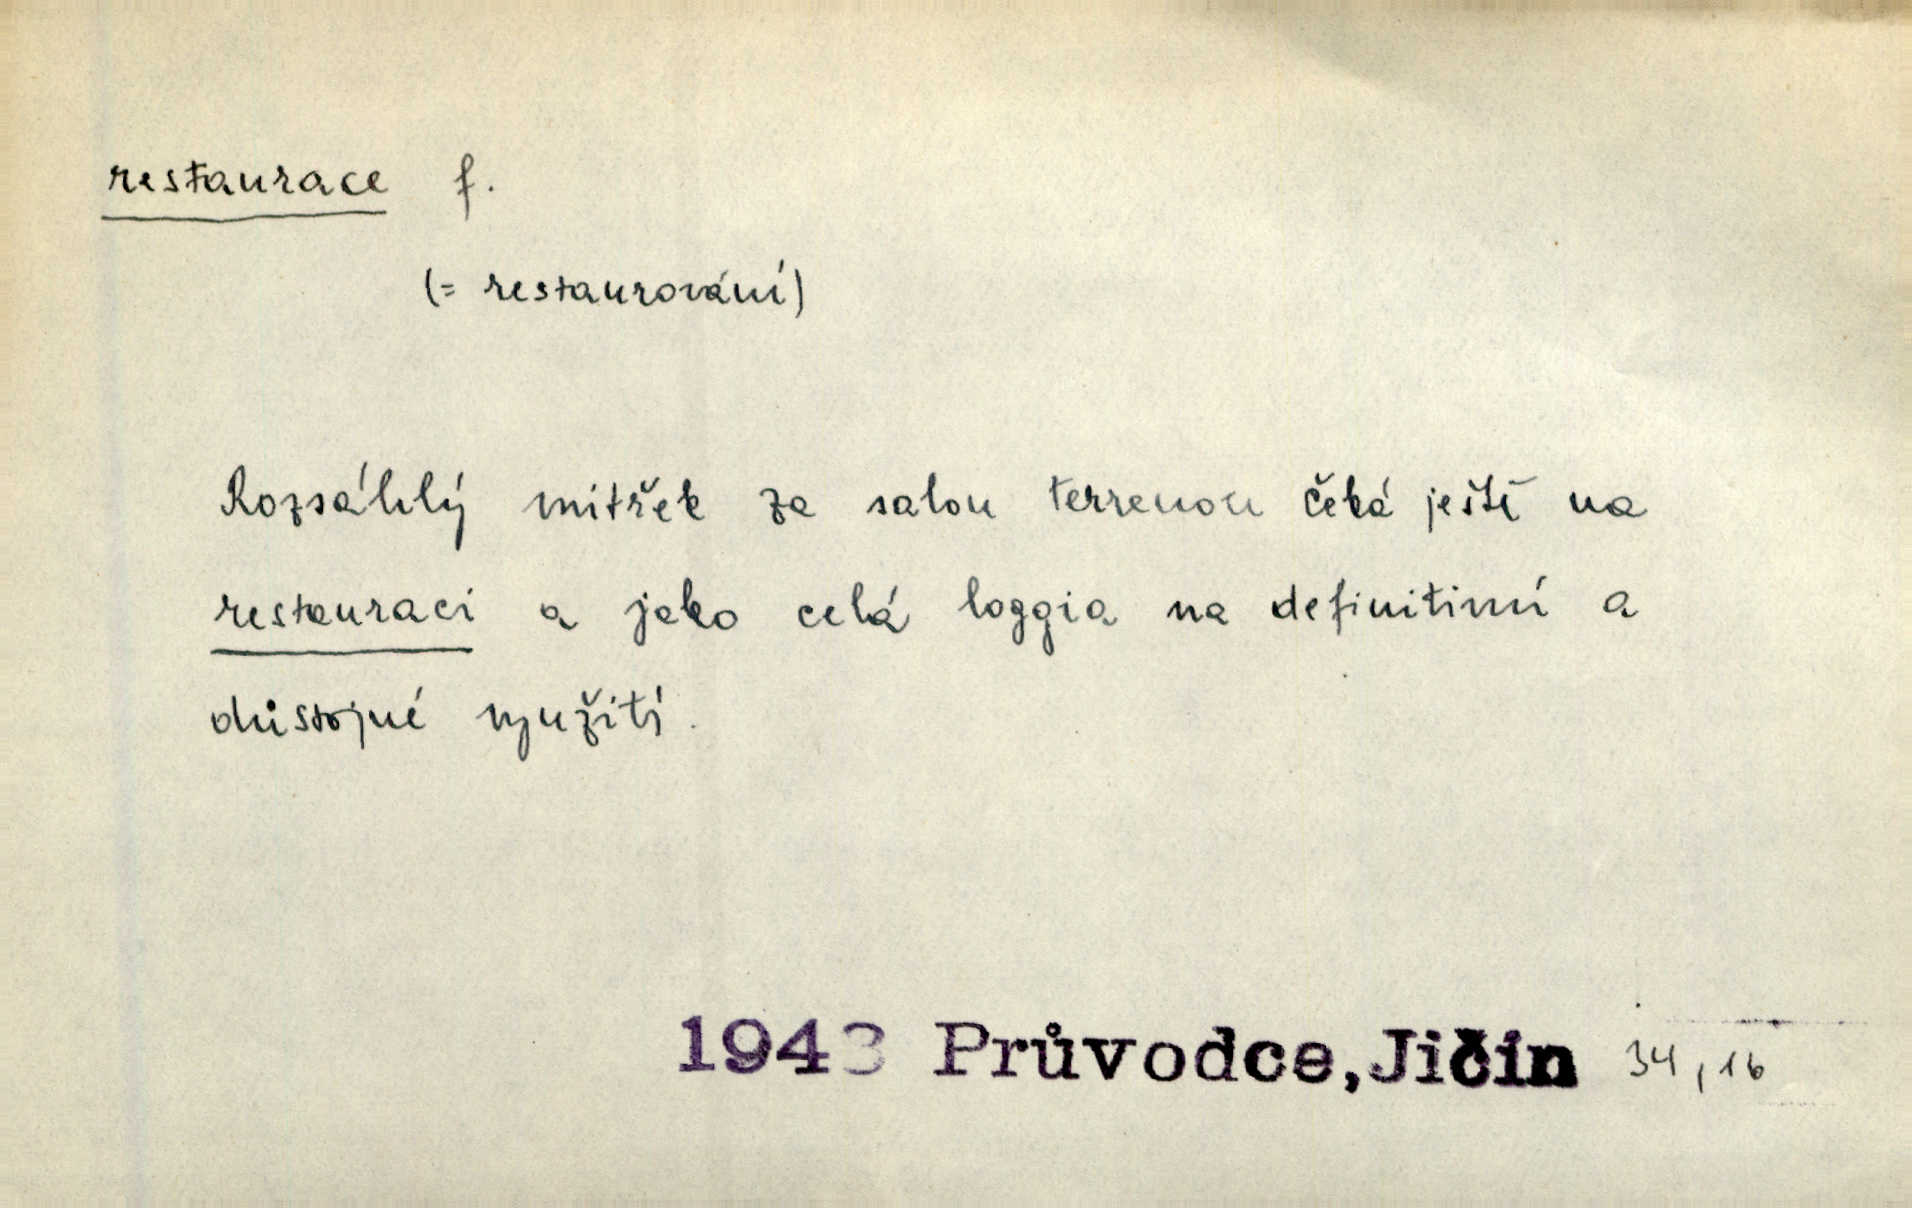 restaurace f.
(= restaurování)
Rozsáhlý vnitřek za salou terrenou čeká ještě na
restauraci a jako celá loggia na definitivní a
důstojné využití.
1943 Průvodce, Jičín 34, 16